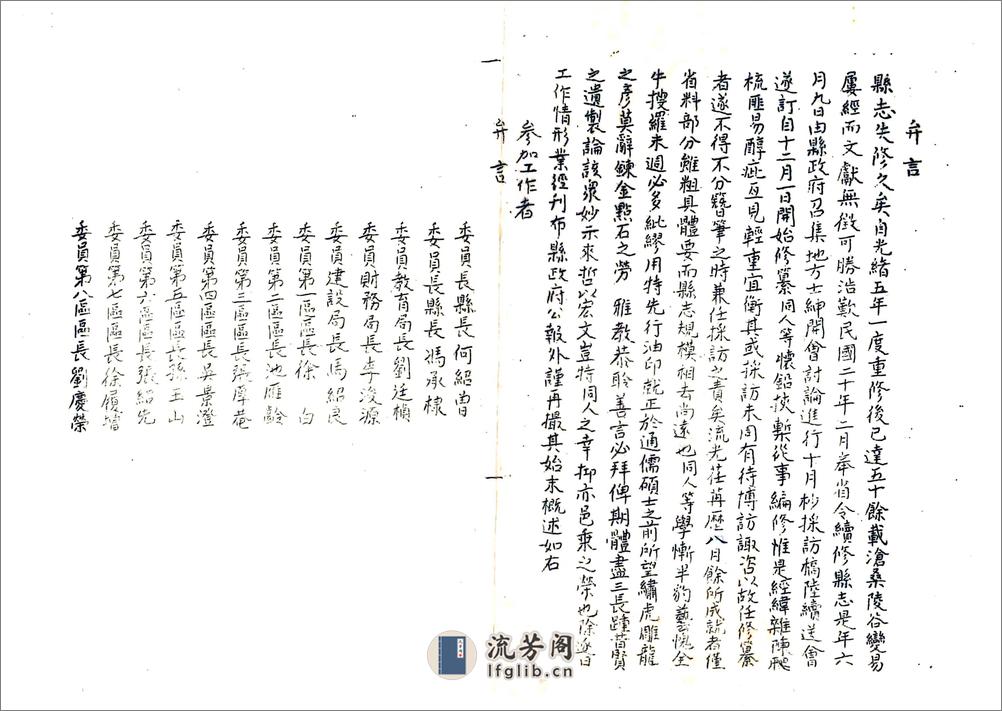 弁言
縣志失修久矣自光緒五年一度重修後已達五十餘載滄桑陵谷變易
屢經而文獻無徵可勝浩歎民國二十年二月奉省令續修縣志是年六
月九日由縣政府召集地方士紳開會討論進行十月杪採訪稿陸續送會
遂訂自十二月一日開始修纂同人等懷鉛挾槧從事編修惟是經緯雜陳爬
梳匪易醇疵互見輕重宜衡其或採訪未周有待博訪諏咨以故任修纂
者遂不得不分簪筆之時兼任採訪之責矣流光荏苒歷八月餘所成就者僅
省料部分雖粗具體要而縣志規模相去尚遠也同人等學慚半豹藝愧全
牛搜羅未週必多紕繆用特先行油印就正於通儒碩士之前所望繡虎雕龍
之彥莫辭鍊金點石之勞 雅教恭聆善言必拜俾期體盡三長踵昔賢
之遺製論該眾妙示來哲以宏文豈特同人之幸抑亦邑乘之榮也除逐日
工作情形業經刊布縣政府公報外謹再撮其始末概述如右
參加工作者
弁言
一
一
委員長縣長何紹曾
委員長縣長馮承棣
委員教育局長劉廷楨
委員財務局長李浚源
委員建設局長馮紹良
委員第一區區長徐 白
委員第二區區長池雁齡
委員第三區區長張厚菴
委員第四區區長吳景澄
委員第五區區長孫玉山
委員第六區區長張紹先
委員第七區區長徐履墉
委員第八區區長劉慶榮
流芳阁
lfglib.cn